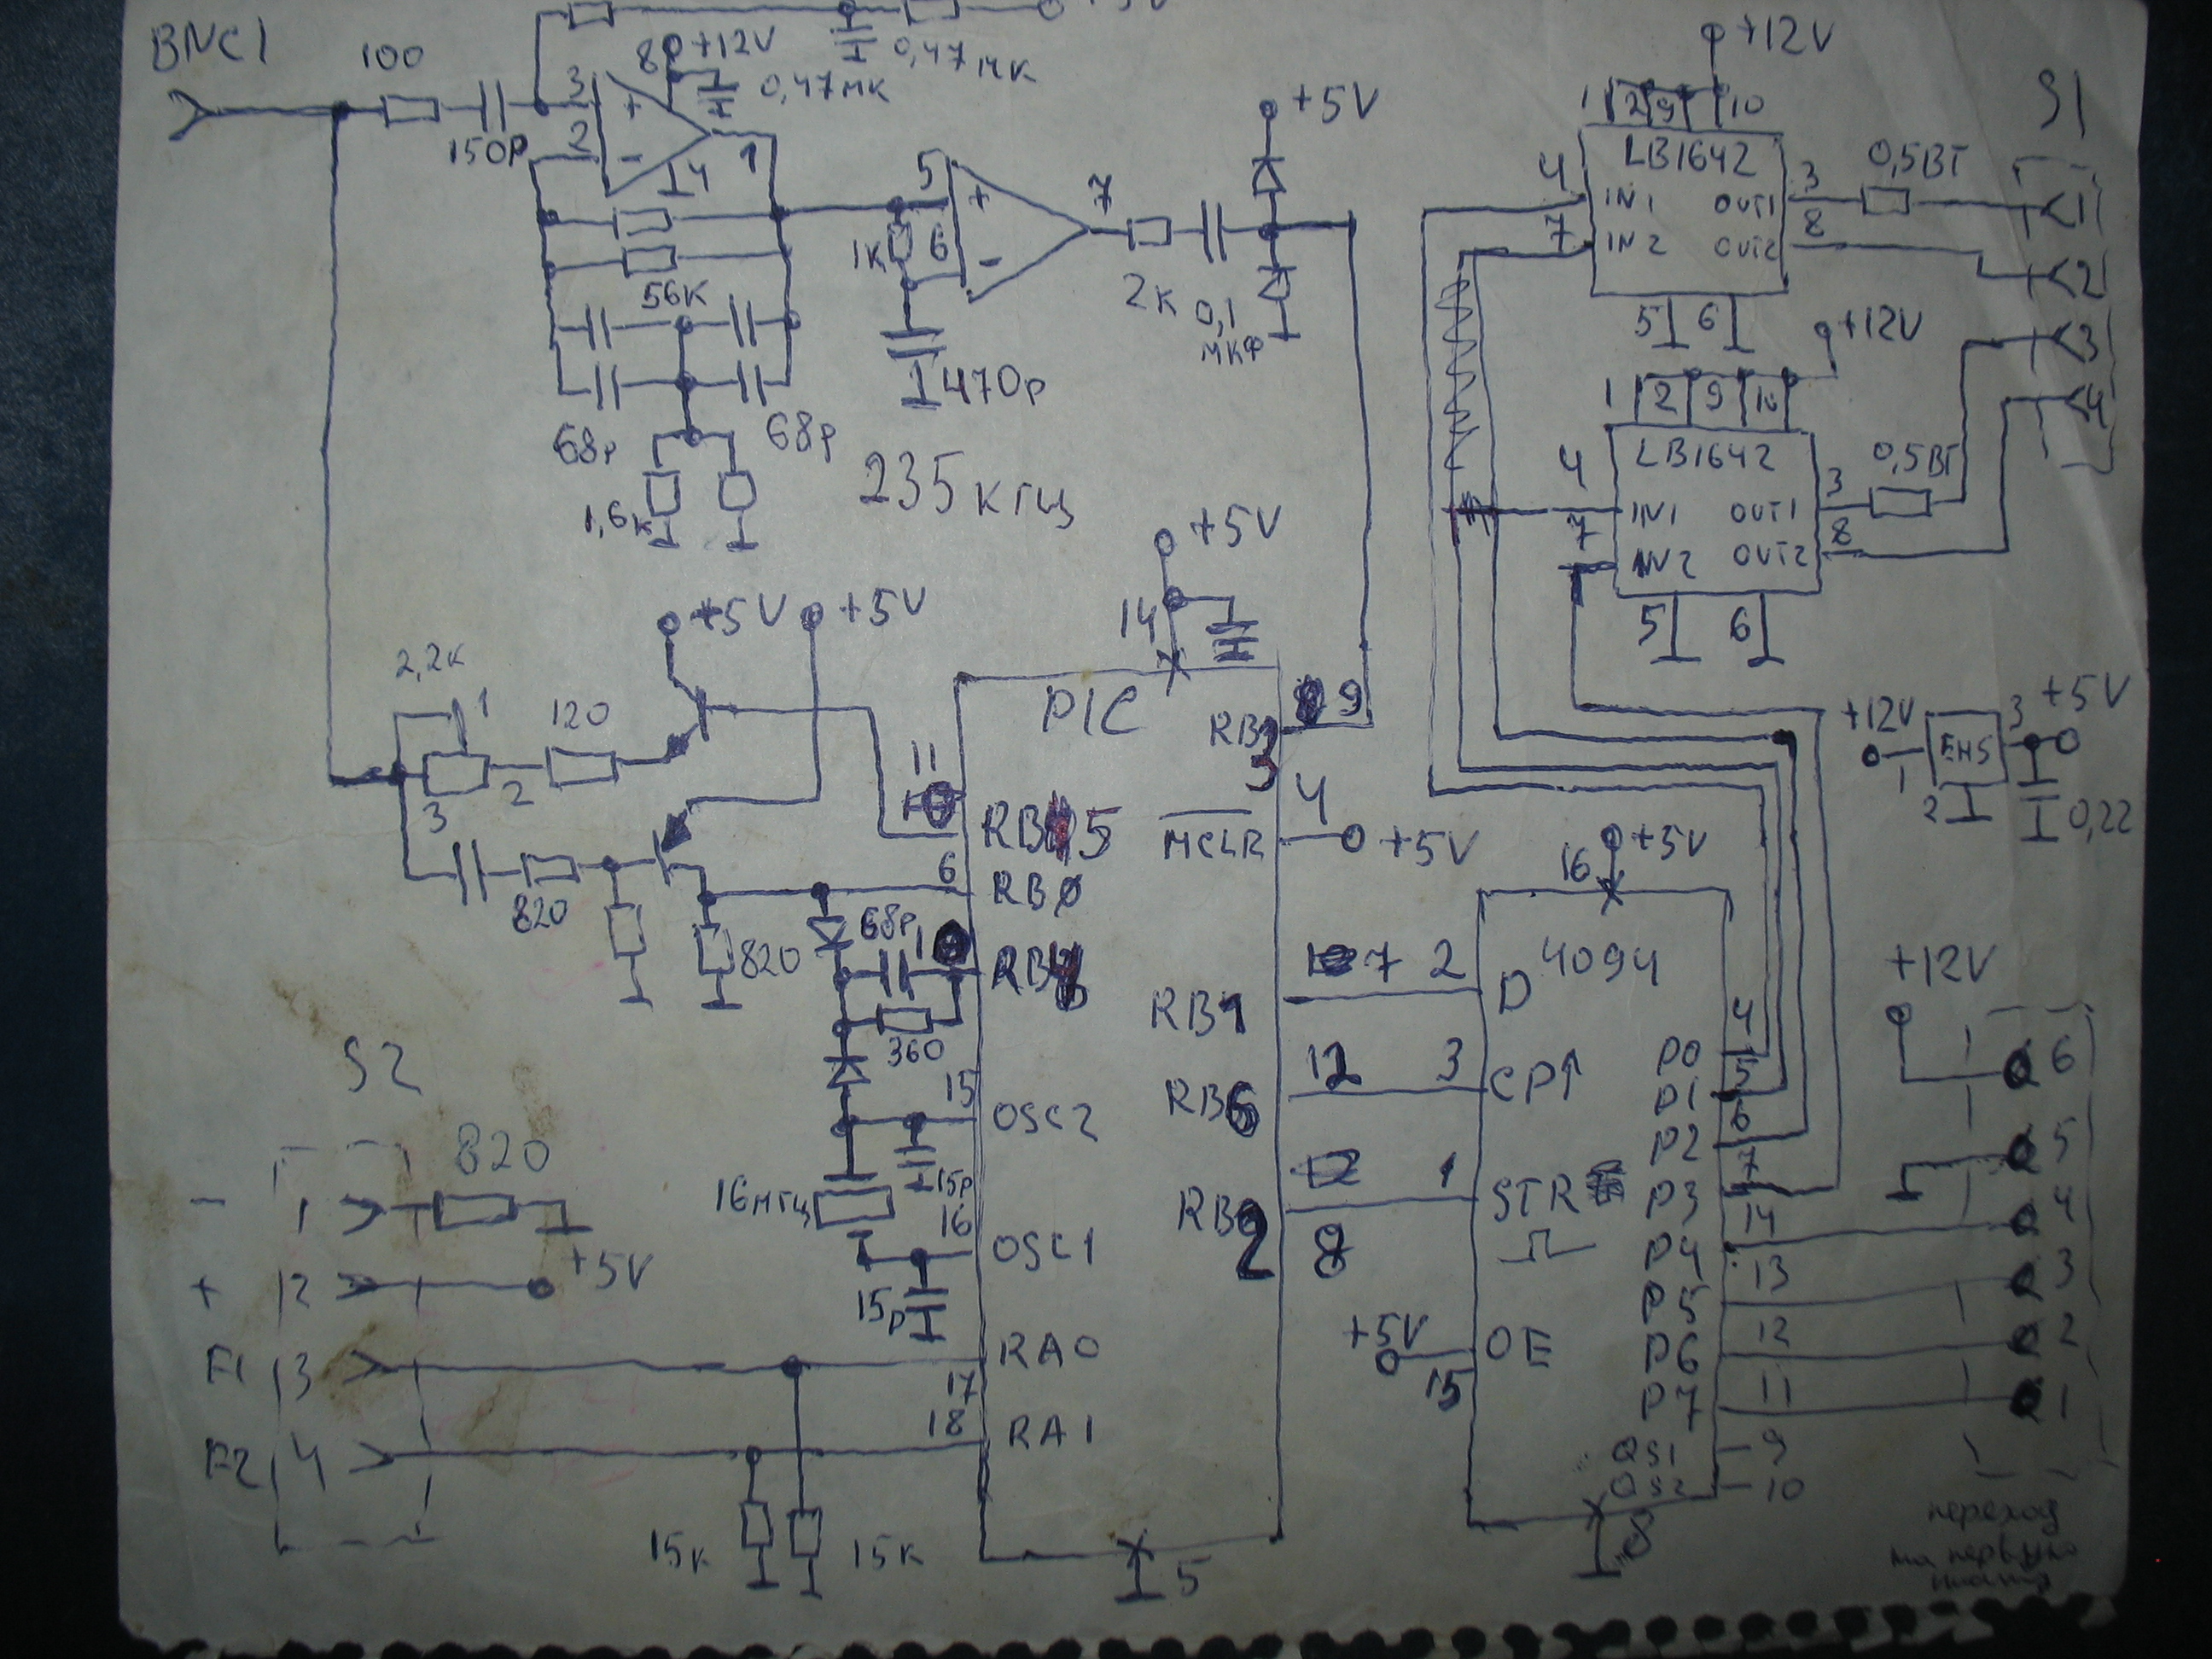 BNC1
100
150P
3
2
+
-
8
+12V
0,47мк
0,47мк
4
1
56K
68P
68P
1,6K
235кГц
1K
5
6
+
-
470P
7
2K
0,1
мкф
+5V
+12V
1 2 9 10
LB1642
4 IN1 OUT1 3
7 IN2 OUT2 8
5 6
0,5ВТ
S1
1
2
3
4
+12V
1 2 9 10
LB1642
4 IN1 OUT1 3
7 IN2 OUT2 8
5 6
0,5ВТ
+5V
14
+5V
+5V
2,2K
1
2
3
120
820
820
PIC
11
RB5
6
RB0
68P
360
15
OSC2
15P
16мгц
16
OSC1
15P
RA0
17
18
RA1
15K
15K
5
RB3
9
4
MCLR
+5V
RB1 7 2 D
RB6 12 3 CP↑
RB2 8 1 STR
+5V
OE
15
16
+5V
4094
P0 4
P1 5
P2 6
P3 7
P4 14
P5 13
P6 12
P7 11
QS1 9
QS2 10
8
+12V
1
EH5
2
3
+5V
0,22
+12V
6
5
4
3
2
1
переход
на первую
S2
820
- 1
+ 2
+5V
F1 3
F2 4